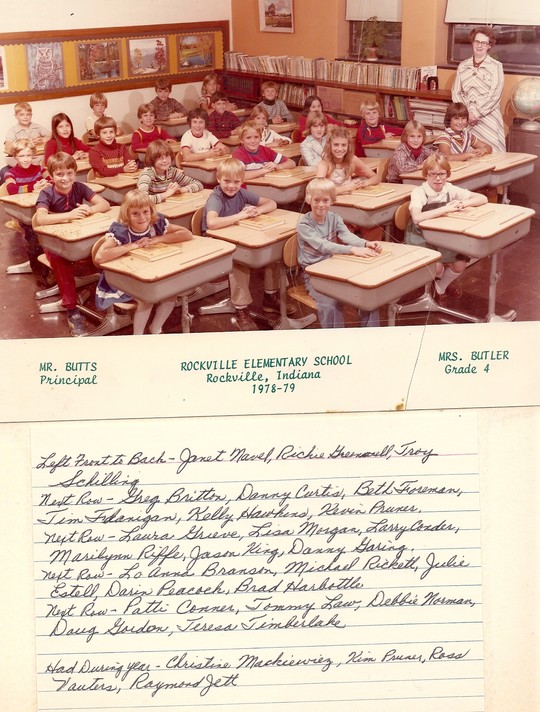 MR. BUTTS
Principal
ROCKVILLE ELEMENTARY SCHOOL
Rockville, Indiana
1978-79
MRS. BUTLER
Grade 4
Left Front to Back - Janet Navel, Richie Greenwell, Troy
Schilling
Next Row - Greg Britton, Danny Curtis, Beth Foreman,
Tim Flanigan, Kelly Hawkins, Kevin Pruner.
Next Row - Laura Grieve, Lisa Morgan, Larry Conder,
Marilynn Riffle, Jason King, Danny Goring.
Next Row - Lo Anna Branson, Michael Rickett, Julie
Estell, Darin Peacock, Brad Harbottle
Next Row - Patti Conner, Tommy Law, Debbie Norman,
Doug Gordon, Teresa Timberlake
Had During year - Christine Mackiewiez, Kim Pruner, Ross
Vauters, Raymond Jett